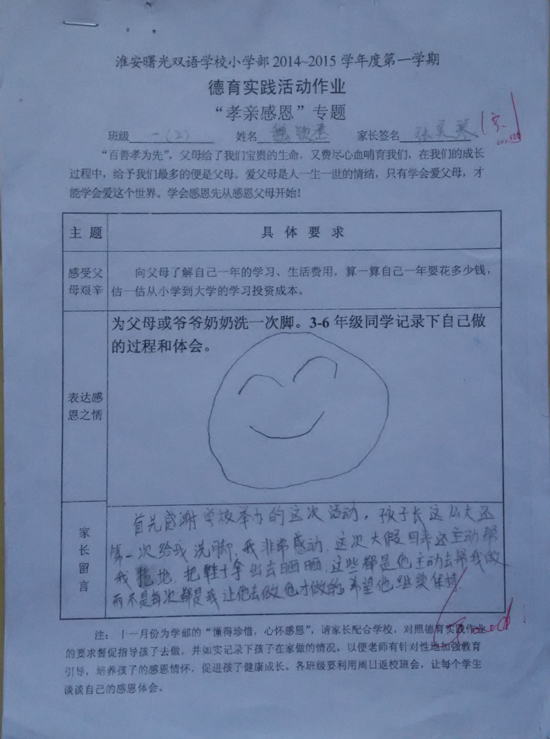 淮安曙光双语学校小学部 2014~2015 学年度第一学期
德育实践活动作业
“孝亲感恩”专题
班级 一(2) 姓名 家长签名 张
“百善孝为先”，父母给了我们宝贵的生命，又费尽心血哺育我们，在我们的成长
过程中，给予我们最多的便是父母。爱父母是人一生一世的情结，只有学会爱父母，才
能学会爱这个世界。学会感恩先从感恩父母开始!
主 题 具 体 要 求
感受父
母艰辛
向父母了解自己一年的学习、生活费用，算一算自己一年要花多少钱，
估一估从小学到大学的学习投资成本。
表达感
恩之情
为父母或爷爷奶奶洗一次脚。3-6 年级同学记录下自己做
的过程和体会。
家
长
留
言
首先感谢学校举办的这次活动，孩子长这么大还
第一次给我洗脚，我非常感动，这次大假回来还主动帮
我拖地，把鞋子拿出去晒晒，这些都是他主动去帮我做
而不是每次都是我让他去做他才做的，希望他继续保持
注：十一月份为学部的“懂得珍惜，心怀感恩”，请家长配合学校，对照德育实践作业
的要求督促指导孩子去做，并如实记录下孩子在家做的情况，以便老师有针对性地加强教育
引导，培养孩子的感恩情怀，促进孩子健康成长。各班级要利用周日返校班会，让每个学生
谈谈自己的感恩体会。